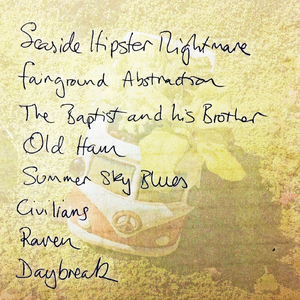 Seaside Hipster Nightmare
fairground Abstraction
The Baptist and his Brother
Old Ham
Summer Sky Blues
Civilians
Raven
Daybreak